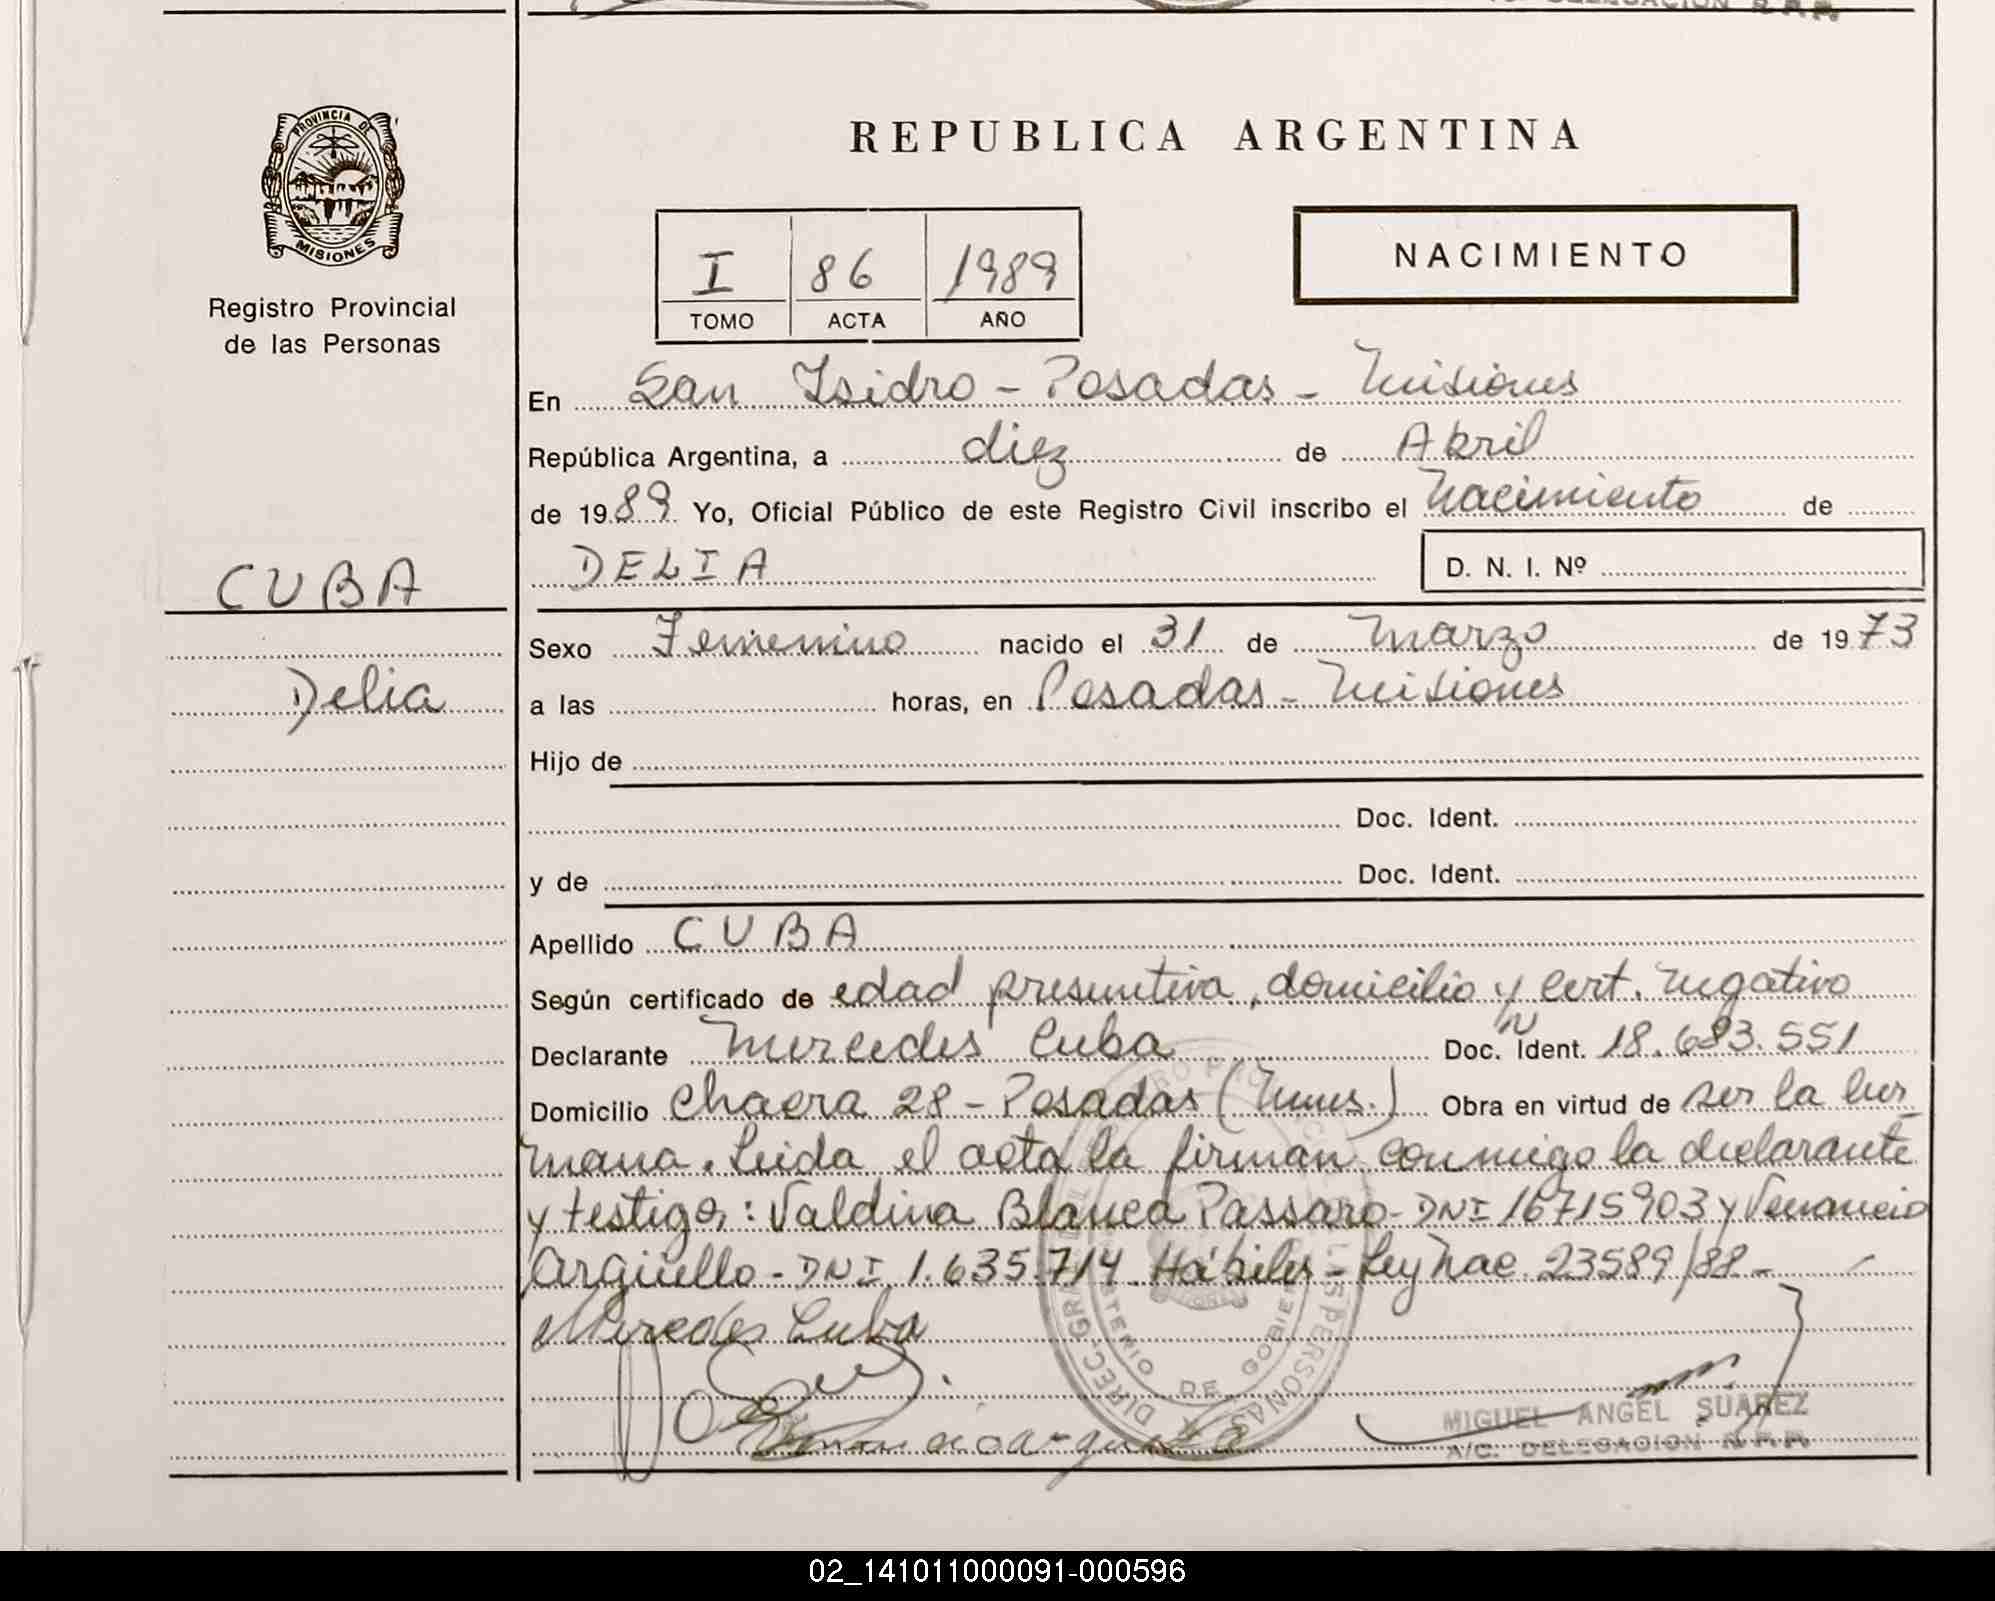 PROVINCIA DE
MISIONES
Registro Provincial
de las Personas
REPUBLICA ARGENTINA
I 86 1989
TOMO ACTA AÑO
NACIMIENTO
En San Isidro - Posadas - Misiones
República Argentina, a diez de Abril
de 1989 Yo, Oficial Público de este Registro Civil inscribo el Nacimiento de
DELIA D. N. I. Nº
CUBA
Delia
Sexo Femenino nacido el 31 de Marzo de 1973
a las horas, en Posadas - Misiones
Hijo de
Doc. Ident.
y de Doc. Ident.
Apellido CUBA
Según certificado de edad presuntiva, domicilio y cert. negativo
Declarante Mercedes Cuba Doc. Ident. 18.683.551
Domicilio Chacra 28 - Posadas (Mnes.) Obra en virtud de ser la her
mana. Leida el acta la firman conmigo la declarante
y testigo: Valdina Blanca Passaro - DNI 16715903 y Venancio
Argüello - DNI 1.635.714 Hábiles - Ley Nac. 23589/88 -
Mercedes Cuba
MIGUEL ANGEL SUAREZ
A/C. DELEGACION R.P.P.
02_141011000091-000596